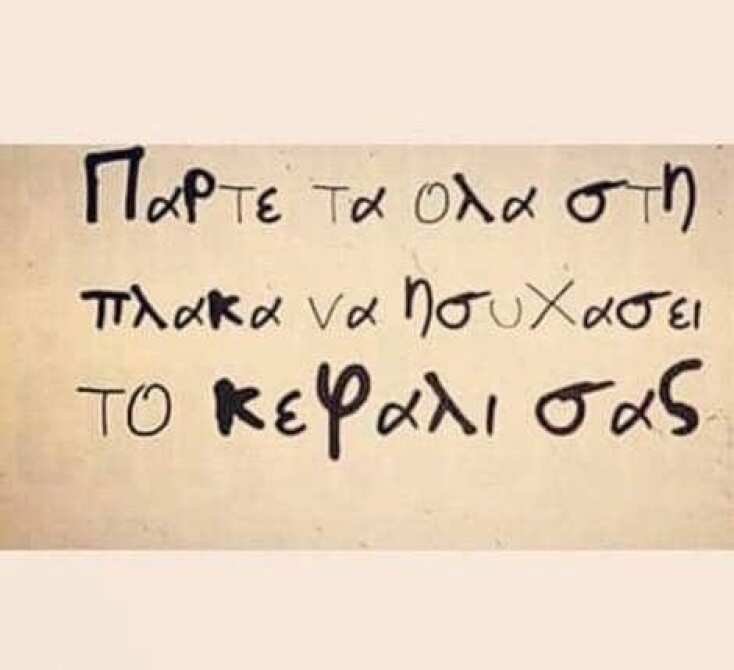 Παρτε τα ολα στη
πλακα να ησυχασει
το κεφαλι σας